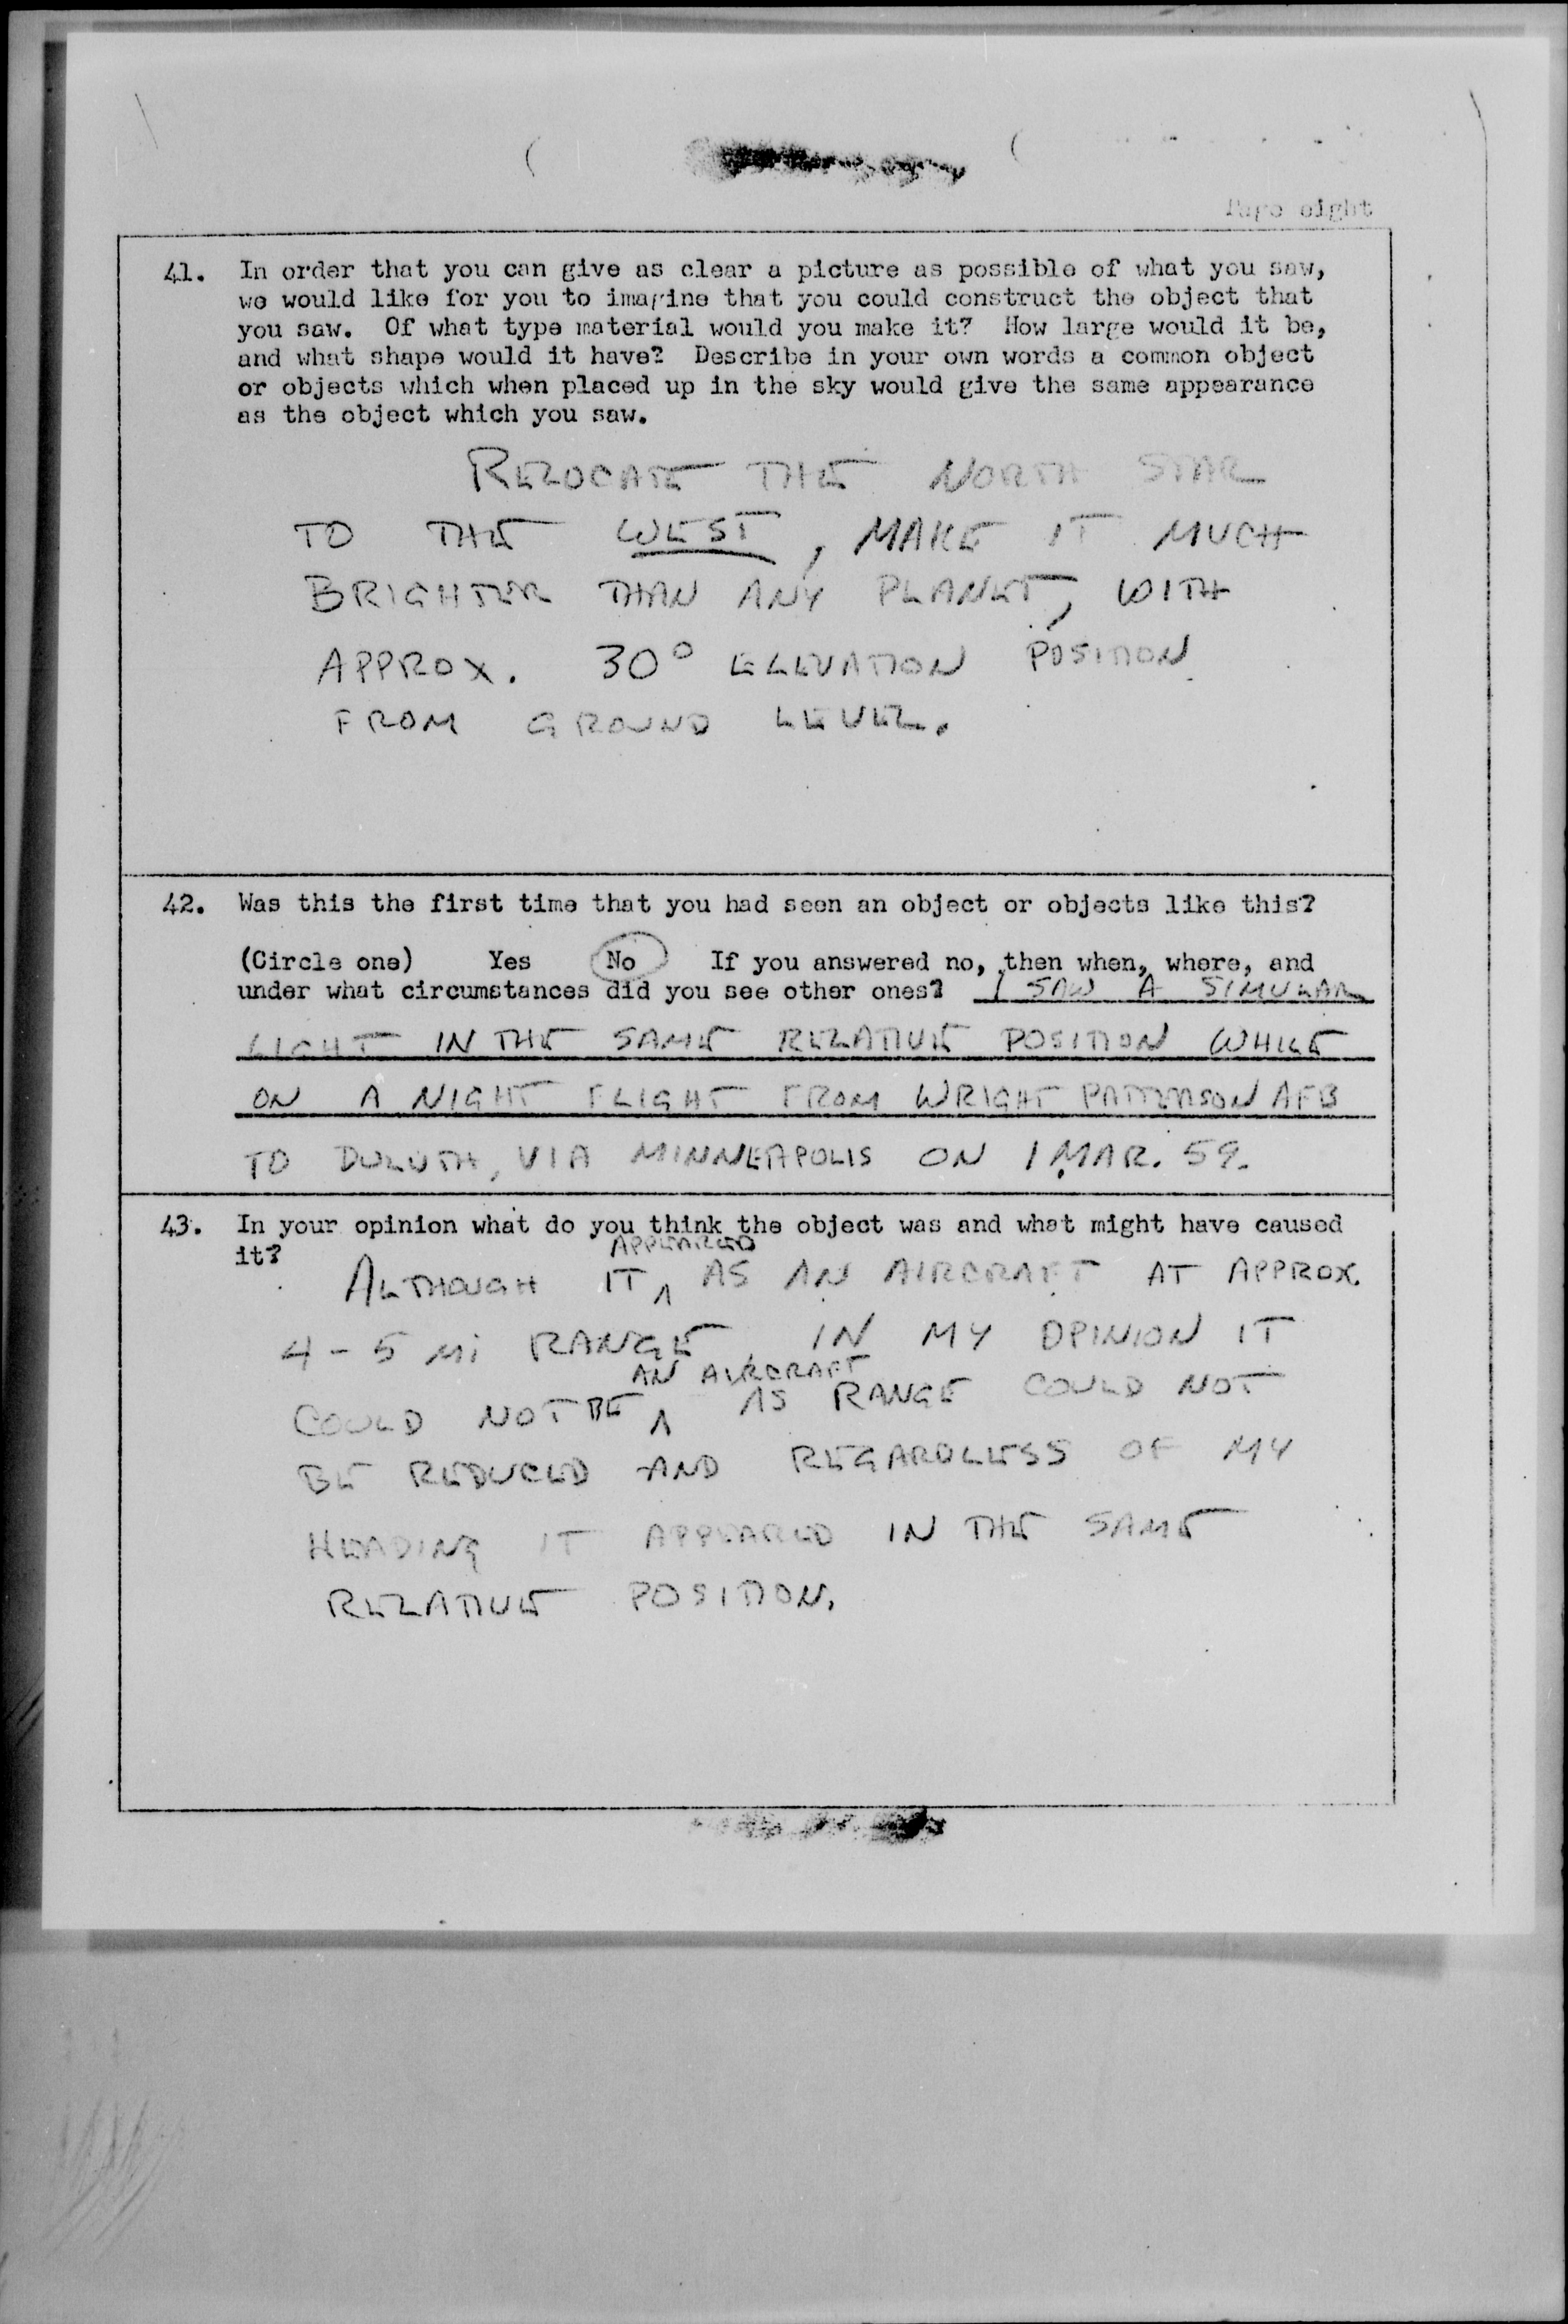 Page eight
41. In order that you can give as clear a picture as possible of what you saw,
we would like for you to imagine that you could construct the object that
you saw. Of what type material would you make it? How large would it be,
and what shape would it have? Describe in your own words a common object
or objects which when placed up in the sky would give the same appearance
as the object which you saw.
RELOCATE THE NORTH STAR
TO THE WEST, MAKE IT MUCH
BRIGHTER THAN ANY PLANET, WITH
APPROX. 30° ELEVATION POSITION
FROM GROUND LEVEL.
42. Was this the first time that you had seen an object or objects like this?
(Circle one) Yes No If you answered no, then when, where, and
under what circumstances did you see other ones? I SAW A SIMULAR
LIGHT IN THE SAME RELATIVE POSITION WHILE
ON A NIGHT FLIGHT FROM WRIGHT PATTERSON AFB
TO DULUTH, VIA MINNEAPOLIS ON 1 MAR. 59.
43. In your opinion what do you think the object was and what might have caused
it?
APPEARED
ALTHOUGH IT ^ AS AN AIRCRAFT AT APPROX.
4-5 Mi RANGE IN MY OPINION IT
AN AIRCRAFT
COULD NOT BE ^ AS RANGE COULD NOT
BE REDUCED AND REGARDLESS OF MY
HEADING IT APPEARED IN THE SAME
RELATIVE POSITION.